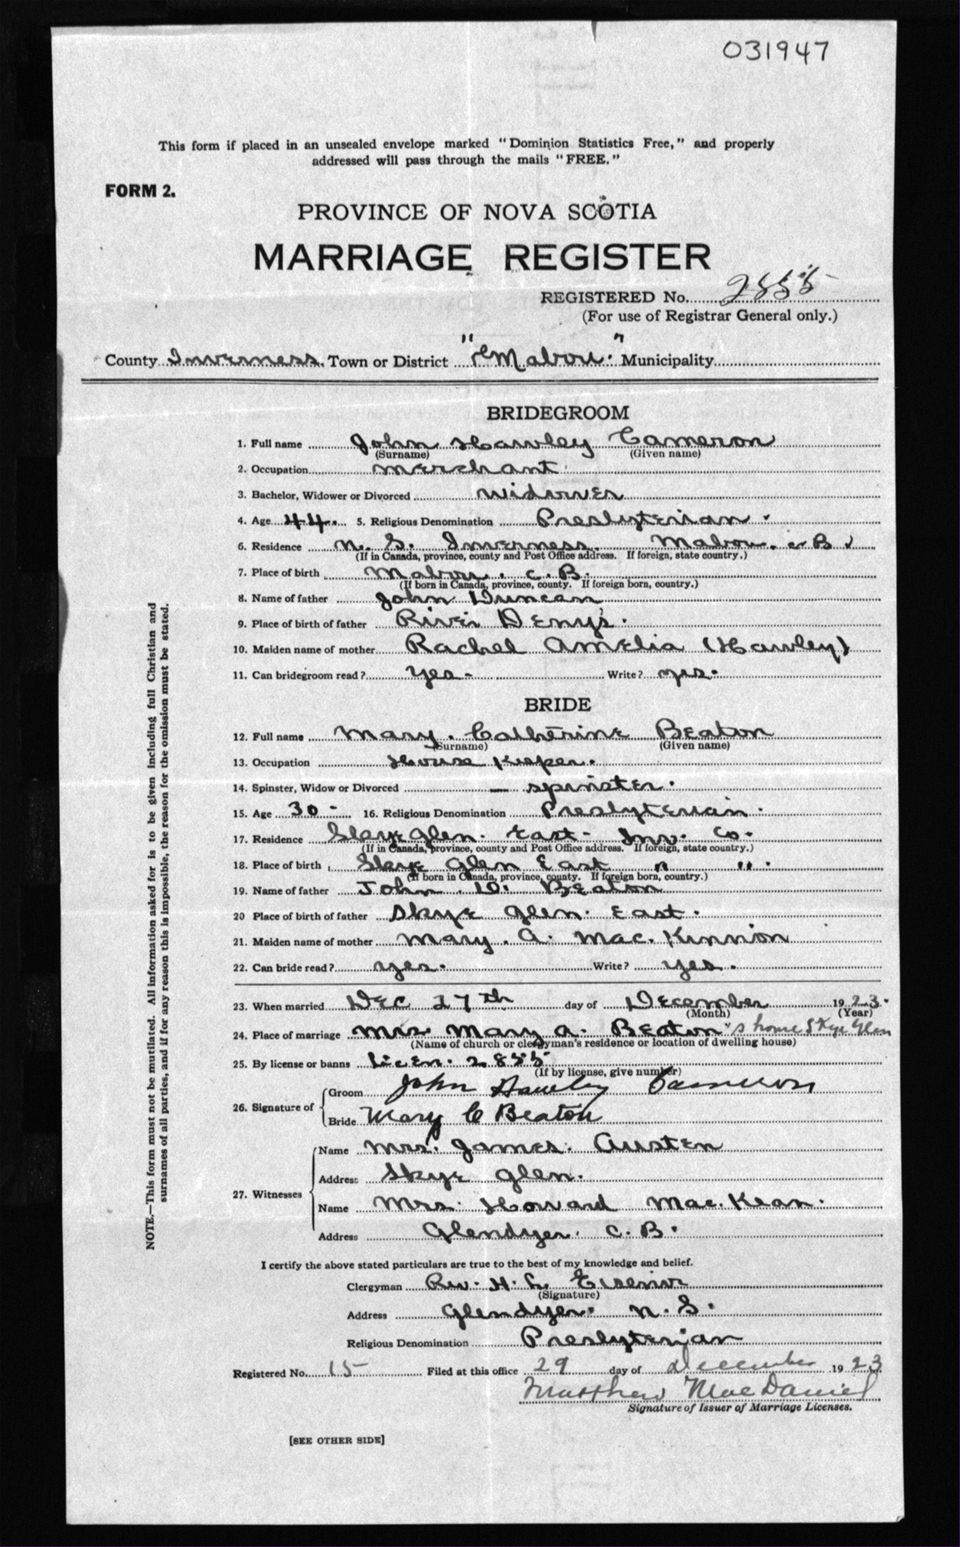 031947
This form if placed in an unsealed envelope marked "Dominion Statistics Free," and properly
addressed will pass through the mails "FREE."
FORM 2.
PROVINCE OF NOVA SCOTIA
MARRIAGE REGISTER
REGISTERED No. 2855
(For use of Registrar General only.)
County Inverness. Town or District "Mabou." Municipality
BRIDEGROOM
1. Full name John Hawley Cameron
(Surname) (Given name)
2. Occupation merchant
3. Bachelor, Widower or Divorced widower
4. Age 44. 5. Religious Denomination Presbyterian.
6. Residence N. S. Inverness. Mabou. C B
(If in Canada, province, county and Post Office address. If foreign, state country.)
7. Place of birth Mabou. C. B.
(If born in Canada, province, county. If foreign born, country.)
8. Name of father John Duncan
9. Place of birth of father River Denys.
10. Maiden name of mother Rachel Amelia (Hawley)
11. Can bridegroom read? Yes- Write? yes.
BRIDE
12. Full name Mary. Catherine Beaton
(Surname) (Given name)
13. Occupation House Keeper.
14. Spinster, Widow or Divorced - spinster.
15. Age 30- 16. Religious Denomination Presbyterian.
17. Residence Skye Glen. East- Inv. Co.
(If in Canada, province, county and Post Office address. If foreign, state country.)
18. Place of birth Skye Glen East " "
(If born in Canada, province, county. If foreign born, country.)
19. Name of father John. D. Beaton
20 Place of birth of father Skye Glen. East.
21. Maiden name of mother Mary. A. Mac. Kinnon
22. Can bride read? yes. Write? yes.
23. When married Dec 27th day of December 1923.
(Month) (Year)
24. Place of marriage Mrs Mary A. Beaton's home Skye Glen
(Name of church or clergyman's residence or location of dwelling house)
25. By license or banns Licen. 2855
(If by license, give number)
26. Signature of
Groom John Hawley Cameron
Bride Mary C Beaton
27. Witnesses
Name Mrs. James. Austen
Address Skye Glen.
Name Mrs. Howard Mac. Kean.
Address Glendyer. C. B.
I certify the above stated particulars are true to the best of my knowledge and belief.
Clergyman Rev. H. L. Eisenor
(Signature)
Address Glendyer. N. S.
Religious Denomination Presbyterian
Registered No. 15 Filed at this office 29 day of December 1923
Matthew MacDaniel
Signature of Issuer of Marriage Licenses.
[SEE OTHER SIDE]
NOTE.—This form must not be mutilated. All information asked for is to be given including full Christian and
surnames of all parties, and if for any reason this is impossible, the reason for the omission must be stated.